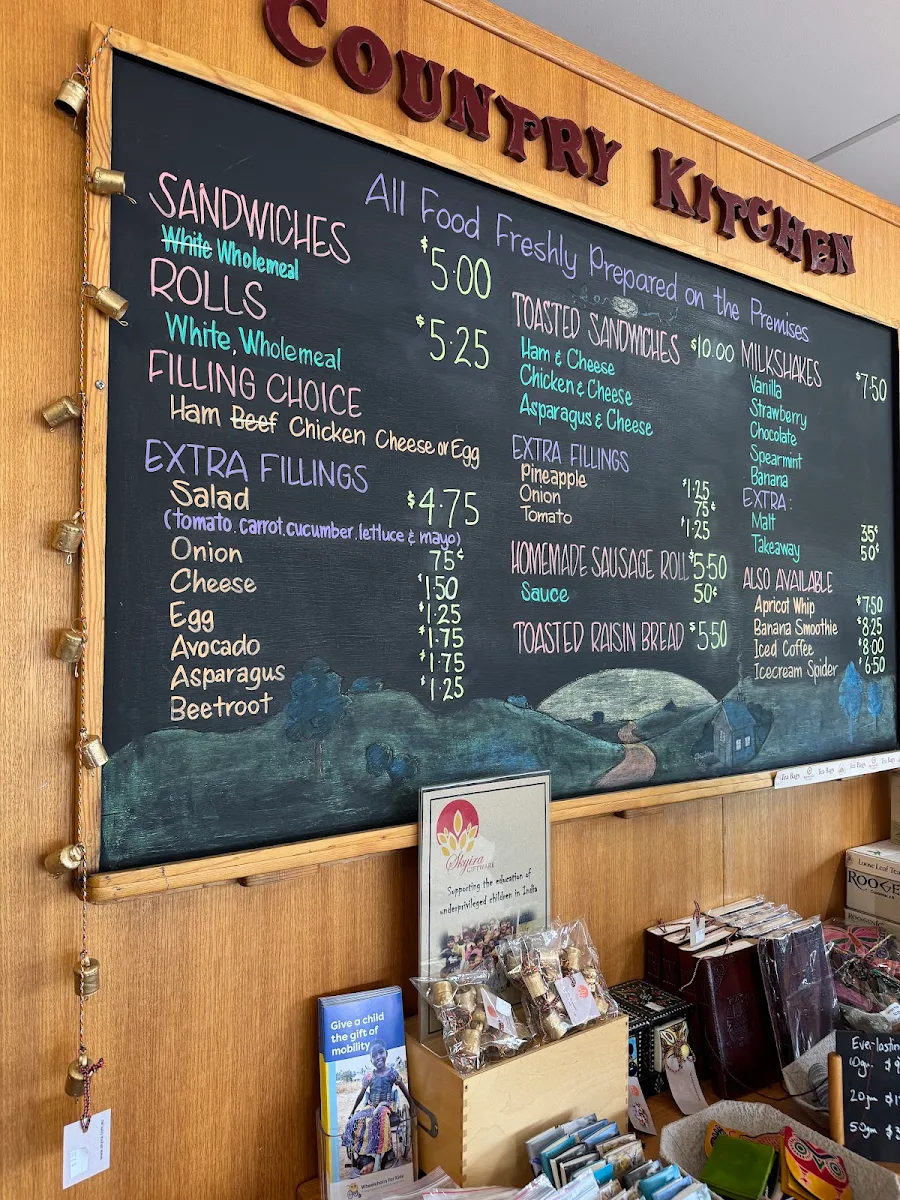 COUNTRY KITCHEN
All Food Freshly Prepared on the Premises
SANDWICHES $5.00
White Wholemeal
ROLLS $5.25
White, Wholemeal
FILLING CHOICE
Ham Beef Chicken Cheese or Egg
EXTRA FILLINGS
Salad $4.75
(tomato, carrot, cucumber, lettuce & mayo)
Onion 75¢
Cheese $1.50
Egg $1.25
Avocado $1.75
Asparagus $1.75
Beetroot $1.25
TOASTED SANDWICHES $10.00
Ham & Cheese
Chicken & Cheese
Asparagus & Cheese
EXTRA FILLINGS
Pineapple $1.25
Onion 75¢
Tomato $1.25
HOMEMADE SAUSAGE ROLL $5.50
Sauce 50¢
TOASTED RAISIN BREAD $5.50
MILKSHAKES $7.50
Vanilla
Strawberry
Chocolate
Spearmint
Banana
EXTRA:
Malt 35¢
Takeaway 50¢
ALSO AVAILABLE
Apricot Whip $7.50
Banana Smoothie $8.25
Iced Coffee $8.00
Icecream Spider $6.50
Tea Bags Tea Bags Tea Bags
Skyira
GIFTWARE
Supporting the education of
underprivileged children in India
Give a child
the gift of
mobility
Wheelchairs For Kids
Loose Leaf Tea
Ever-lastin
10gm
20gm
50gm